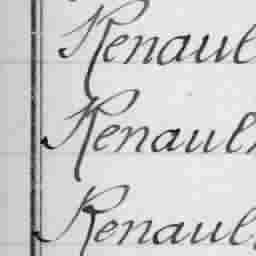 Renaul
Renaul
Renaul